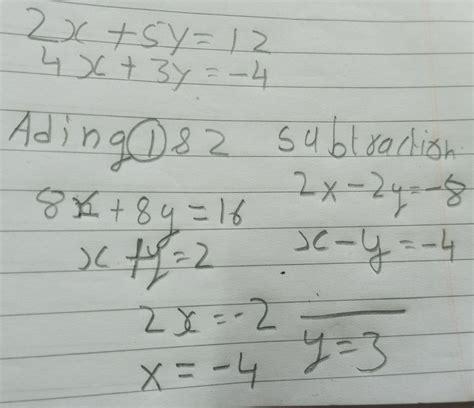 2x + 5y = 12
4x + 3y = -4
Ading ① & 2
8x + 8y = 16
x + y = 2
Subtraction
2x - 2y = -8
x - y = -4
2x = -2
x = -4
y = 3